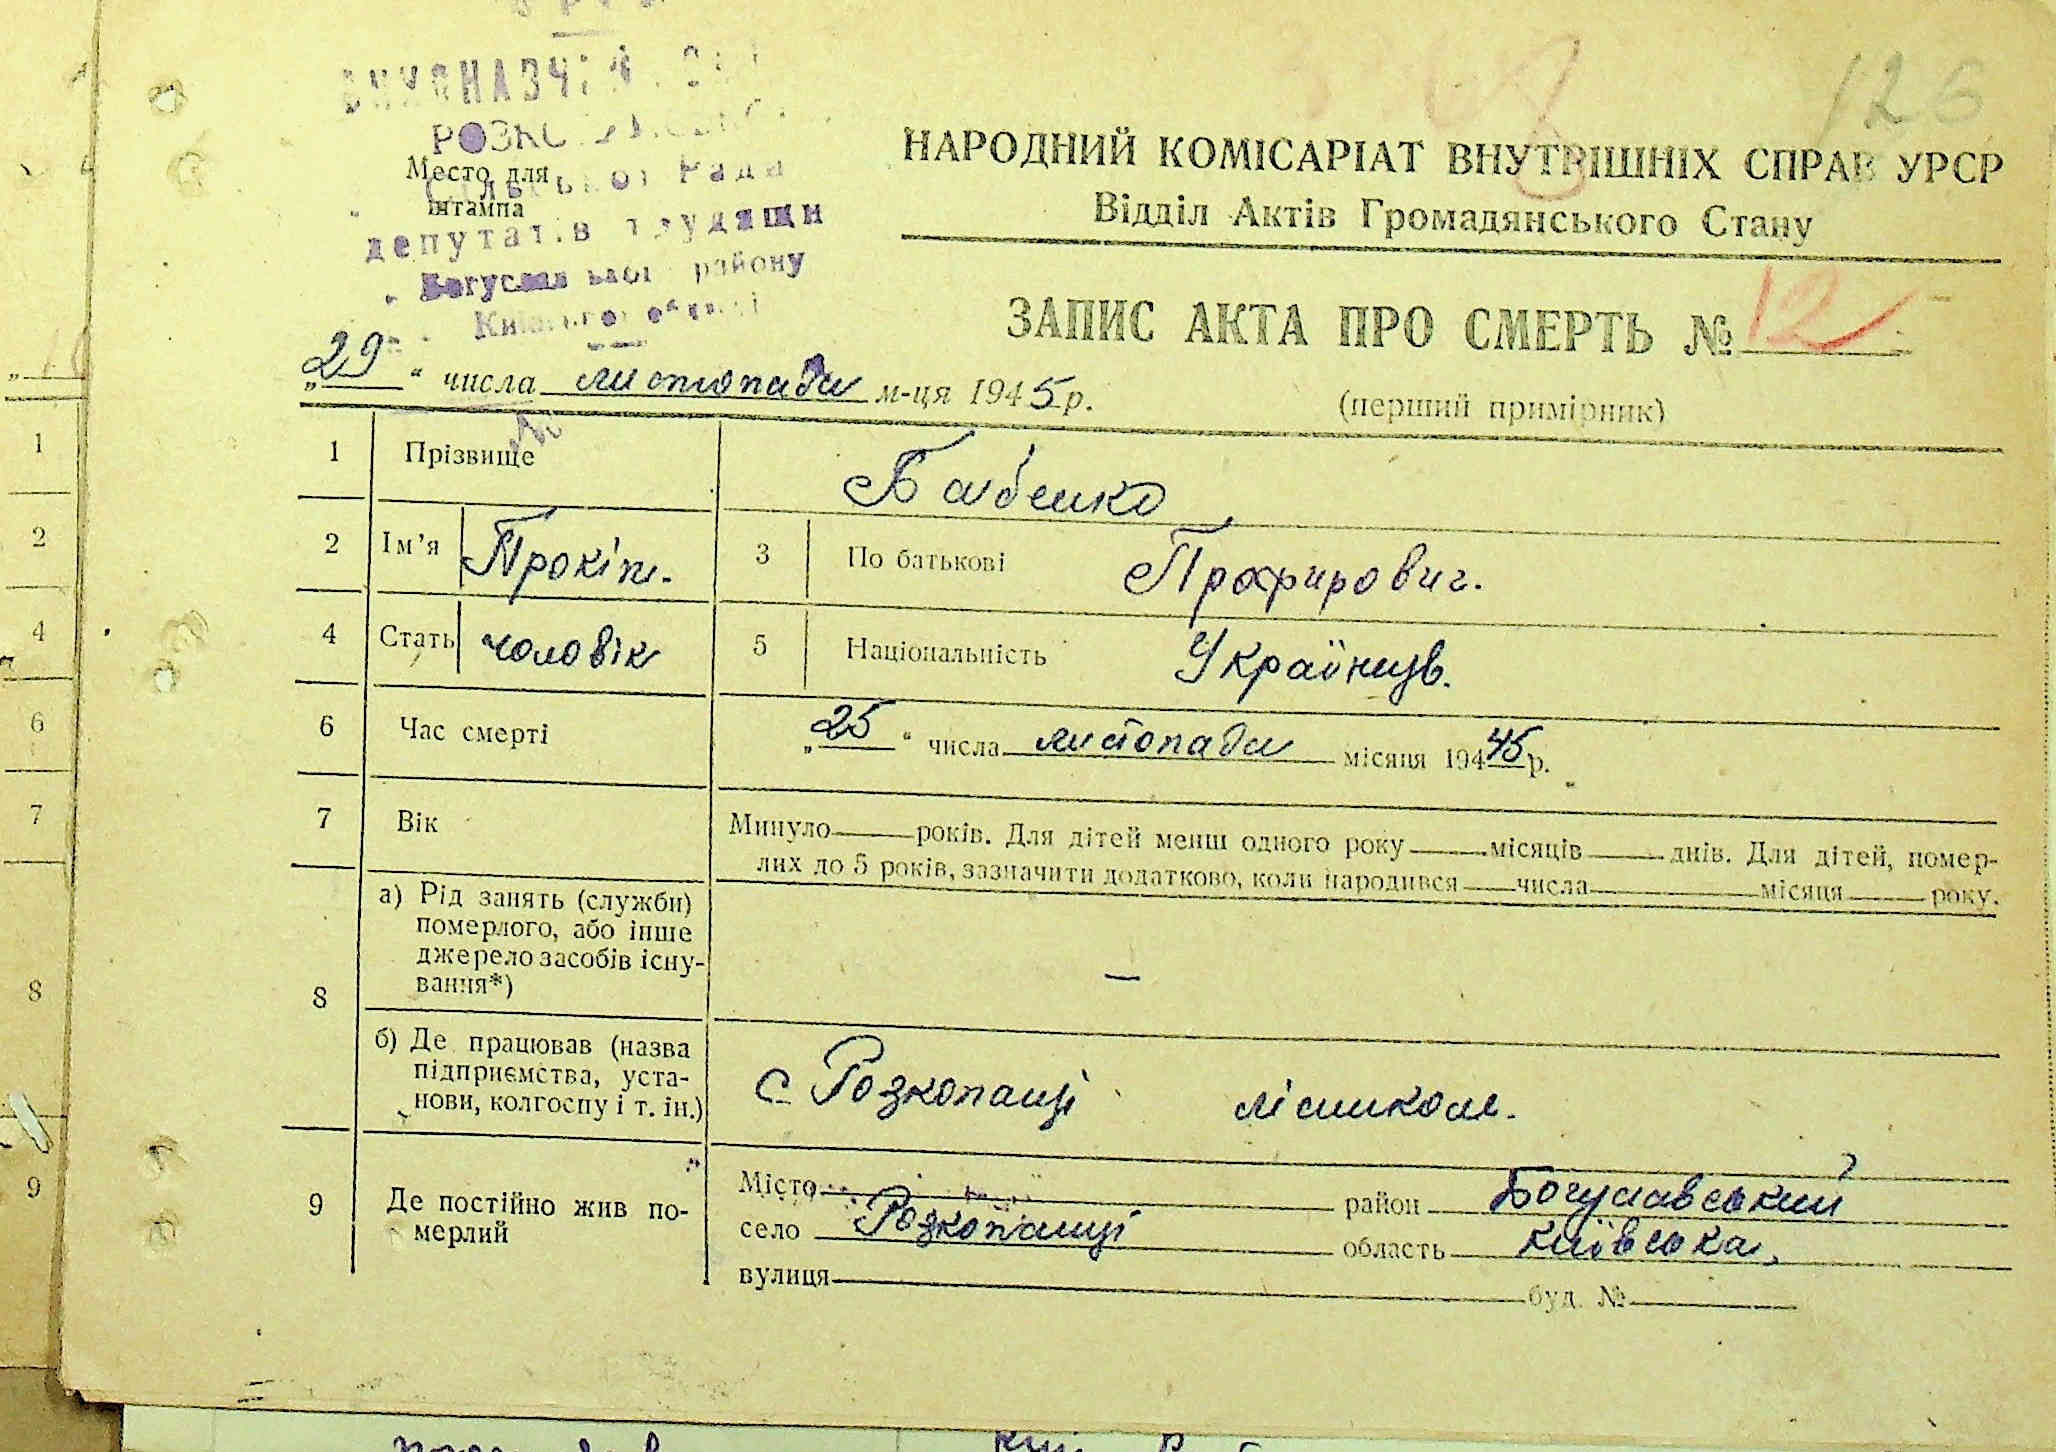 126
РОЗКО
Место для
штампа
Сільської Ради
депутатів трудящи
Богуслав району
НАРОДНИЙ КОМІСАРІАТ ВНУТРІШНІХ СПРАВ УРСР
Відділ Актів Громадянського Стану
ЗАПИС АКТА ПРО СМЕРТЬ № 12
„29“ числа листопада м-ця 1945 р.
(перший примірник)
1 Прізвище Бабенко
2 Ім’я Прокіп. 3 По батькові Профирович.
4 Стать чоловік 5 Національність Українць.
6 Час смерті „25“ числа листопада місяця 19445 р.
7 Вік Минуло років. Для дітей менш одного року місяців днів. Для дітей, помер-
лих до 5 років, зазначити додатково, коли народився числа місяця року.
8 а) Рід занять (служби)
померлого, або інше
джерело засобів існу-
вання*) —
б) Де працював (назва
підприємства, уста-
нови, колгоспу і т. ін.) с Розкопанці лісником.
9 Де постійно жив по-
мерлий
Місто район Богуславський
село Розкопанці область київська,
вулиця буд. №
1
2
4
6
7
8
9